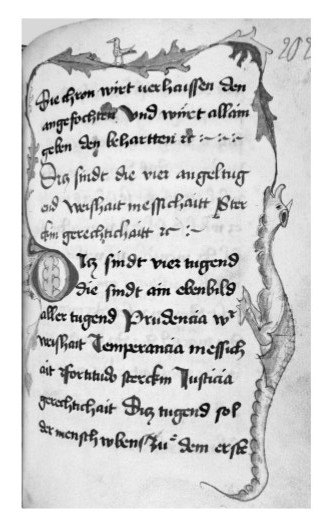 202
Die chron wirt verhaissen den
angefochten Und wirt allain
geben den behartten rc
Ditz sindt die vier angeltug
end weishait messichaitt Ster
ckin gerechtichaitt rc
Ditz sindt vier tugend
die sindt ain ebenbild
aller tugend Prudencia
weishait Temperancia messich
ait Fortitudo sterckin Justicia
gerechtichait Ditz tugend sol
der mensch dem erste